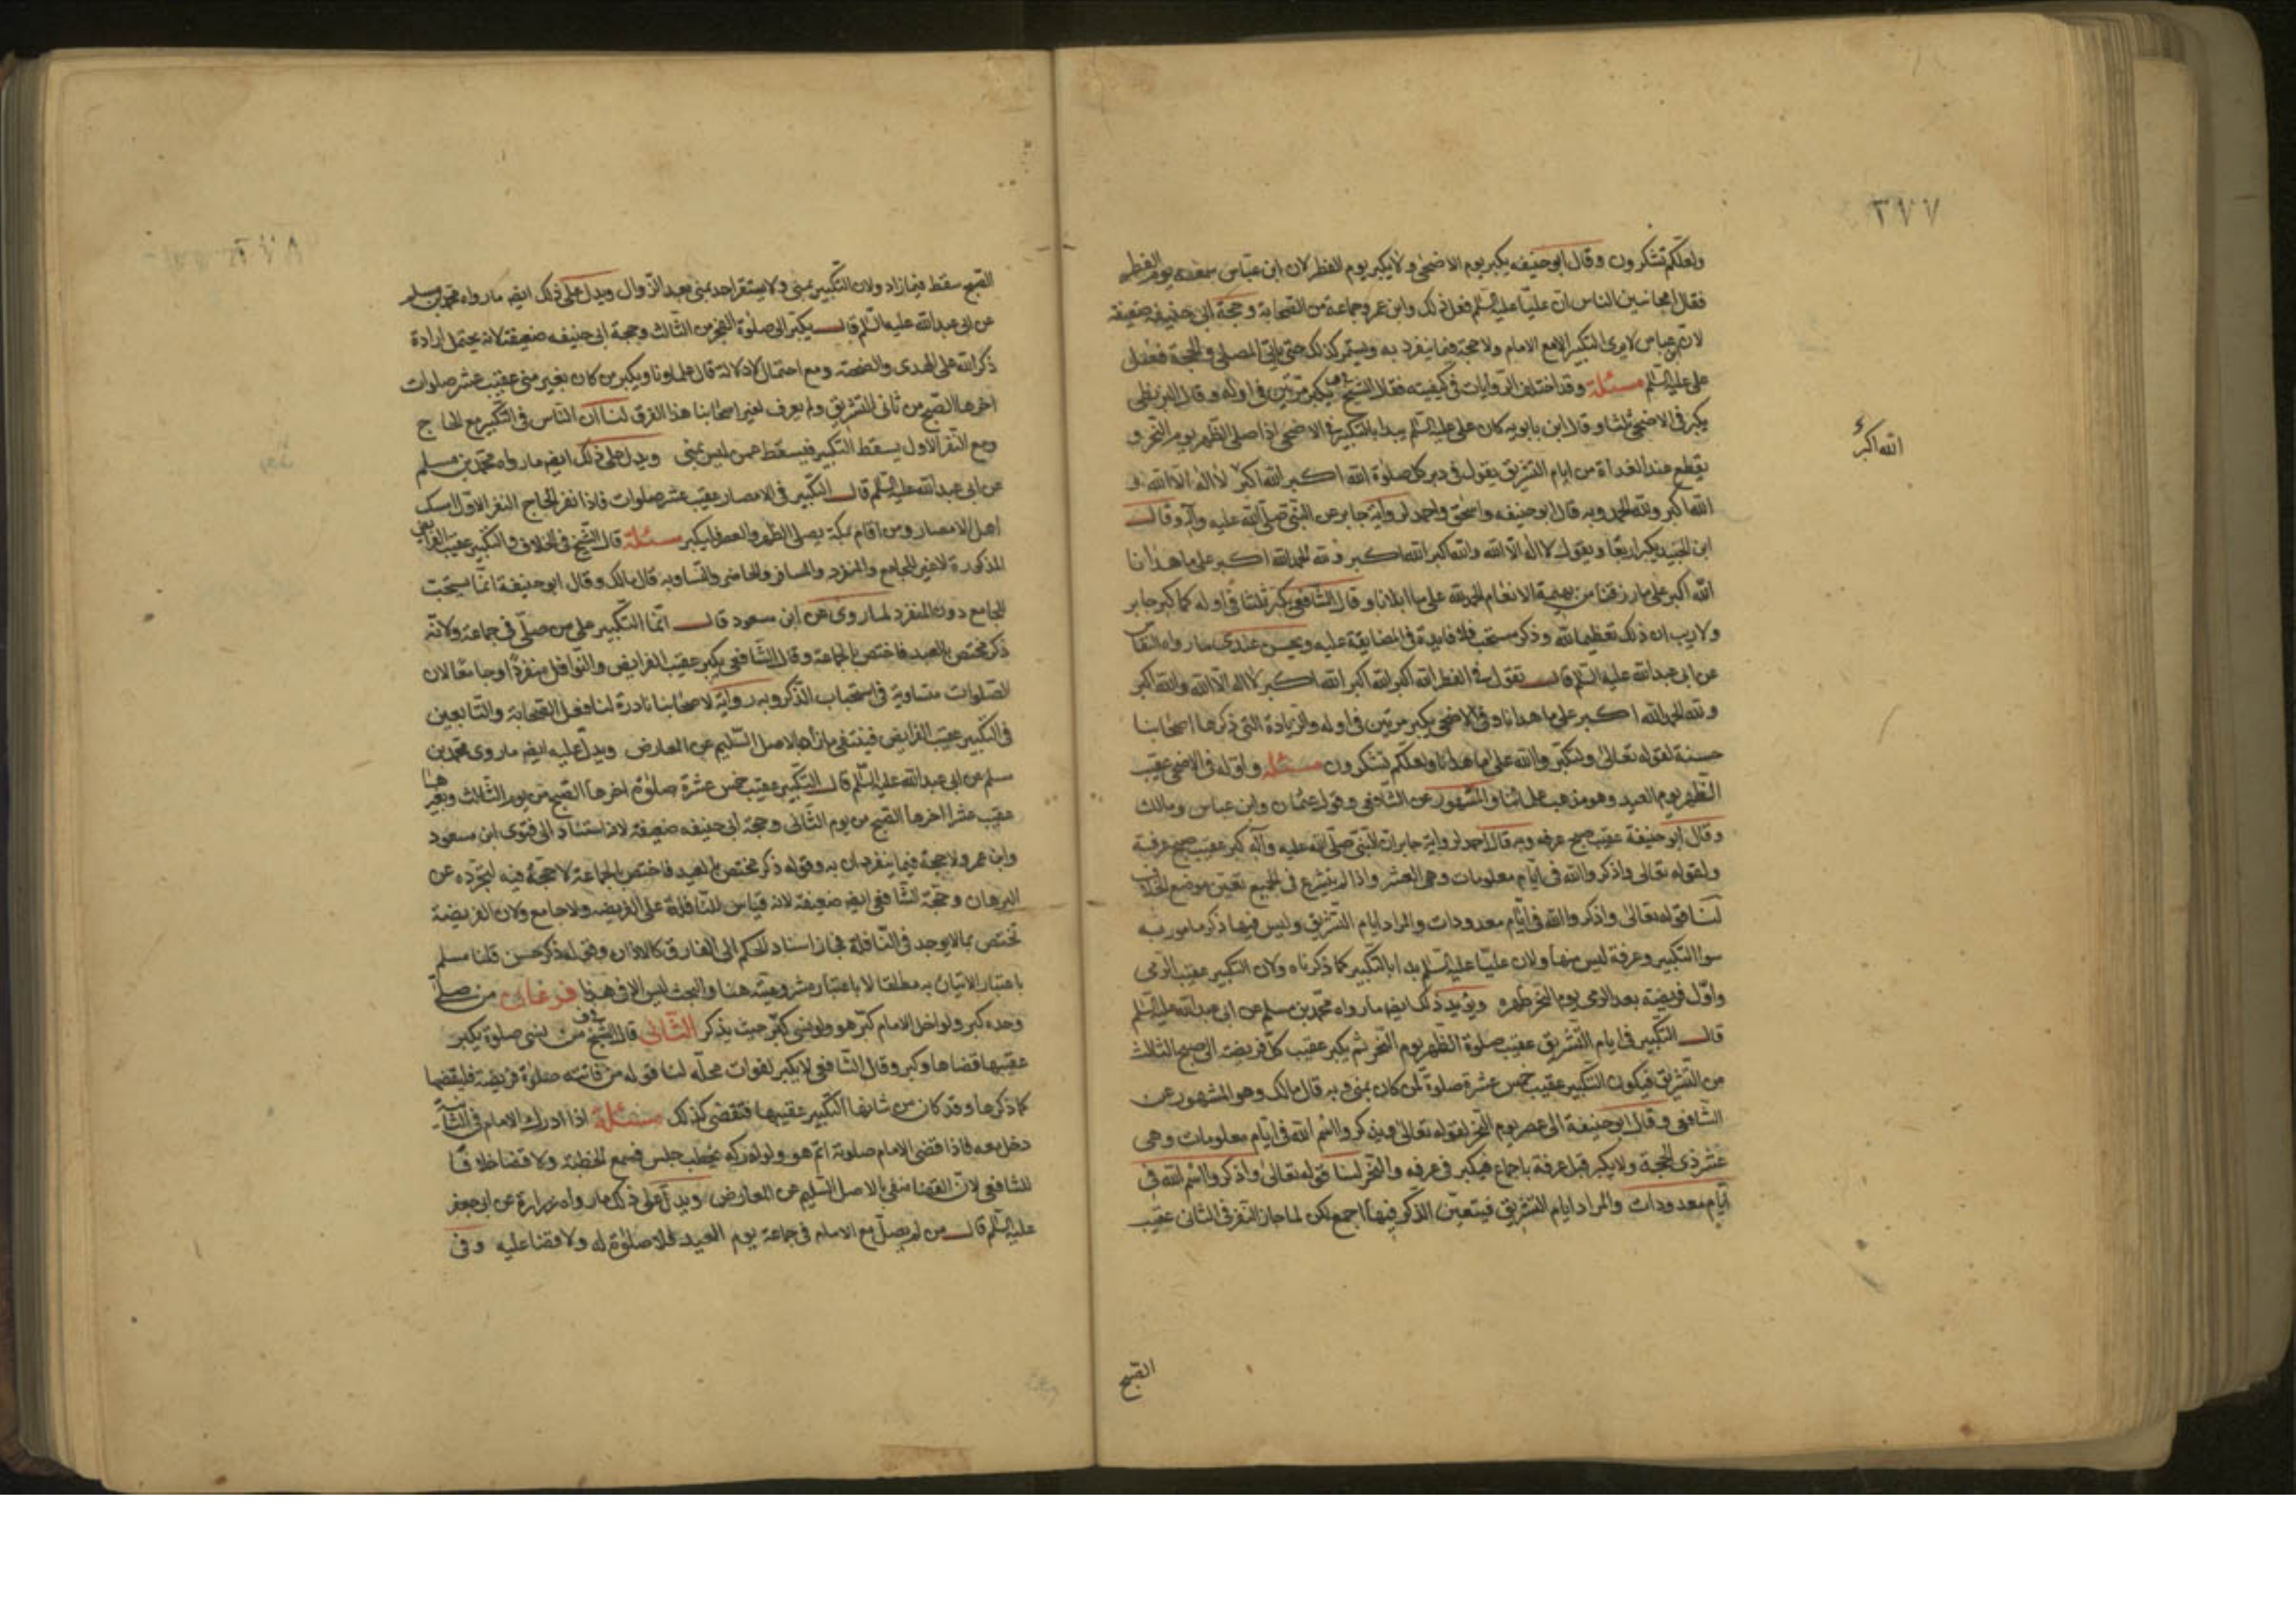 ٣٧٧
ولعلكم تشكرون وقال ابو حنيفه يكبر يوم الاضحى ولا يكبر يوم الفطر لان ابن عباس سمعه يوم الفطر
فقال امجانين الناس ان عليا عليه السلم فعل ذلك وابن عمر وجماعة من الصحابة وحجة ابى حنيفه ضعيفة
لان ابن عباس لا يرى التكبير الا مع الامام ولا حجة فيما ينفرد به ويستمر كذلك حتى ياتى المصلى والحجة فعل
على عليه السلم مسئلة وقد اختلف الروايات فى كيفيته فقال الشيخ يكبر مرتين فى اوله وقال البزنطى
يكبر فى الاضحى ثلثا وقال ابن بابويه كان على عليه السلم يبدا بالتكبير فى الاضحى اذا صلى الظهر يوم النحر و
يقطع عند الغداة من ايام التشريق يقول فى دبر كل صلوة الله اكبر الله اكبر لا اله الا الله و
الله اكبر
الله اكبر ولله الحمد وبه قال ابو حنيفه واسحق واحمد لرواية جابر عن النبى صلى الله عليه وآله وقال
ابن الجنيد يكبر اربعا ويقول لا اله الا الله والله اكبر الله اكبر ولله الحمد الله اكبر على ما هدانا
الله اكبر على ما رزقنا من بهيمة الانعام الحمد لله على ما ابلانا وقال الشافعى يكبر ثلثا فى اوله كما كبر جابر
ولا ريب ان ذلك تعظيم الله وذكر مستحب فلا فايدة فى المضايقة عليه ويحسن عندى ما رواه النقاش
عن ابى عبد الله عليه السلم قال تقول فى الفطر الله اكبر الله اكبر الله اكبر لا اله الا الله والله اكبر
ولله الحمد الله اكبر على ما هدانا وفى الاضحى يكبر مرتين فى اوله والزيادة التى ذكرها اصحابنا
حسنة لقوله تعالى ولتكبروا الله على ما هداكم ولعلكم تشكرون مسئلة واوله فى الاضحى عقيب
الظهر يوم العيد وهو مذهب علمائنا والمشهور عن الشافعى وقول عثمان وابن عباس ومالك
وقال ابو حنيفة عقيب صبح عرفه وبه قال احمد لرواية جابر ان النبى صلى الله عليه وآله كبر عقيب صبح عرفة
ولقوله تعالى واذكروا الله فى ايام معلومات وهى العشر واذا لم يشرع فى الجميع تعين موضع الخلاف
لنا قوله تعالى واذكروا الله فى ايام معدودات والمراد ايام التشريق وليس فيها ذكر مامور به
سوا التكبير وعرفة ليس منها ولان عليا عليه السلم بدا بالتكبير كما ذكرناه ولان التكبير عقيب الرمى
واول فريضة بعد الرمى يوم النحر ظهره ويؤيد ذلك ايضا ما رواه محمد بن مسلم عن ابى عبد الله عليه السلم
قال التكبير فى ايام التشريق عقيب صلوة الظهر يوم النحر ثم يكبر عقيب كل فريضة الى صبح الثالث
من التشريق فيكون التكبير عقيب خمس عشرة صلوة لمن كان بمنى وبه قال مالك وهو المشهور عن
الشافعى وقال ابو حنيفة الى عصر يوم النحر لقوله تعالى ويذكروا اسم الله فى ايام معلومات وهى
عشر ذى الحجة ولا يكبر قبل عرفة باجماع فيكبر فى عرفه والنحر لنا قوله تعالى واذكروا اسم الله فى
ايام معدودات والمراد ايام التشريق فيتعين الذكر فيها اجمع لكن لما جاز النفر فى الثانى عقيب
الصبح
الصبح سقط فيما زاد ولان التكبير بمنى ولا يستقر احد بمنى بعد الزوال ويدل على ذلك ايضا ما رواه محمد بن مسلم
عن ابى عبد الله عليه السلم قال يكبر الى صلوة الفجر من الثالث وحجة ابى حنيفه ضعيفة لانه يحتمل ارادة
ذكر الله على الهدى والضحية ومع احتمال لا دلالة قال علماونا ويكبر من كان بغير منى عقيب عشر صلوات
اخرها الصبح من ثانى التشريق ولم يعرف لغير اصحابنا هذا الفرق لنا ان الناس فى التكبير مع الحاج
ومع النفر الاول يسقط التكبير فيسقط عمن ليس بمنى ويدل على ذلك ايضا ما رواه محمد بن مسلم
عن ابى عبد الله عليه السلم قال التكبير فى الامصار عقيب عشر صلوات فاذا نفر الحاج النفر الاول امسك
اهل الامصار ومن اقام بمكة يصلى الظهر والعصر فليكبر مسئلة قال الشيخ فى الخلاف والتكبير عقيب الفرائض
المذكورة لا غير للجامع والمنفرد والمسافر والحاضر والنسا وبه قال مالك وقال ابو حنيفة انما يستحب
للجامع دون المنفرد لما روى عن ابن مسعود قال انما التكبير على من صلى فى جماعة ولانه
ذكر مختص بالعيد فاختص بالجماعة وقال الشافعى يكبر عقيب الفرايض والنوافل منفردا وجامعا لان
الصلوات متساوية فى استحباب الذكر وبه رواية لاصحابنا نادرة لنا فعل الصحابة والتابعين
فى التكبير عقيب الفرائض فينتفى ما زاد بالاصل السليم عن المعارض ويدل عليه ايضا ما روى محمد بن
مسلم عن ابى عبد الله عليه السلم قال التكبير عقيب خمس عشرة صلوة اخرها الصبح من يوم الثالث وبغيرها
عقيب عشر اخرها الصبح من يوم الثانى وحجة ابى حنيفه ضعيفة لانه استناد الى فتوى ابن مسعود
وابن عمر ولا حجة فيما ينفردان به وقوله ذكر مختص بالعيد فاختص بالجماعة لا حجة فيه لتجرده عن
البرهان وحجة الشافعى ايضا ضعيفة لانه قياس للنافلة على الفريضه ولا جامع ولان الفريضة
تختص بما لا يوجد فى النافلة فجاز اسناد الحكم الى الفارق كالاذان وقوله ذكر حسن قلنا مسلم
باعتبار الاتيان به مطلقا لا باعتبار مشروعيته هنا والبحث ليس الا فى هذا فرعان من صلى
وحده كبر ولو اخل الامام كبر هو ولو نسى كبر حيث يذكر الثانى قال الشيخ من نسى صلوة يكبر
عقيبها قضاها وكبر وقال الشافعى لا يكبر لفوات محله لنا قوله من فاتته صلوة فريضة فليقضها
كما ذكرها وقد كان من شانها التكبير عقيبها فتقضى كذلك مسئلة اذا ادرك الامام فى الثانية
دخل معه فاذا قضى الامام صلوته اتم هو ولو ادركه يخطب جلس فسمع الخطبة ولا قضا خلافا
للشافعى لان القضا منفى بالاصل السليم عن المعارض ويدل على ذلك ما رواه زرارة عن ابى جعفر
عليه السلم قال من لم يصل مع الامام فى جماعة يوم العيد فلا صلوة له ولا قضا عليه وفى